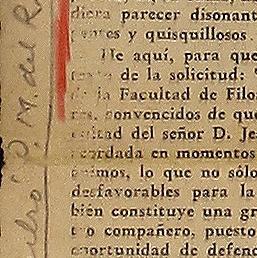 diera parecer disonant
y quisquillosos.
He aquí, para que
de la solicitud:
de la Facultad de Filo
convencidos de que
del señor D. Je
acordada en momentos
lo que no sólo
desfavorables para la
bién constituye una gr
compañero, puesto
oportunidad de defend
P. M. del R